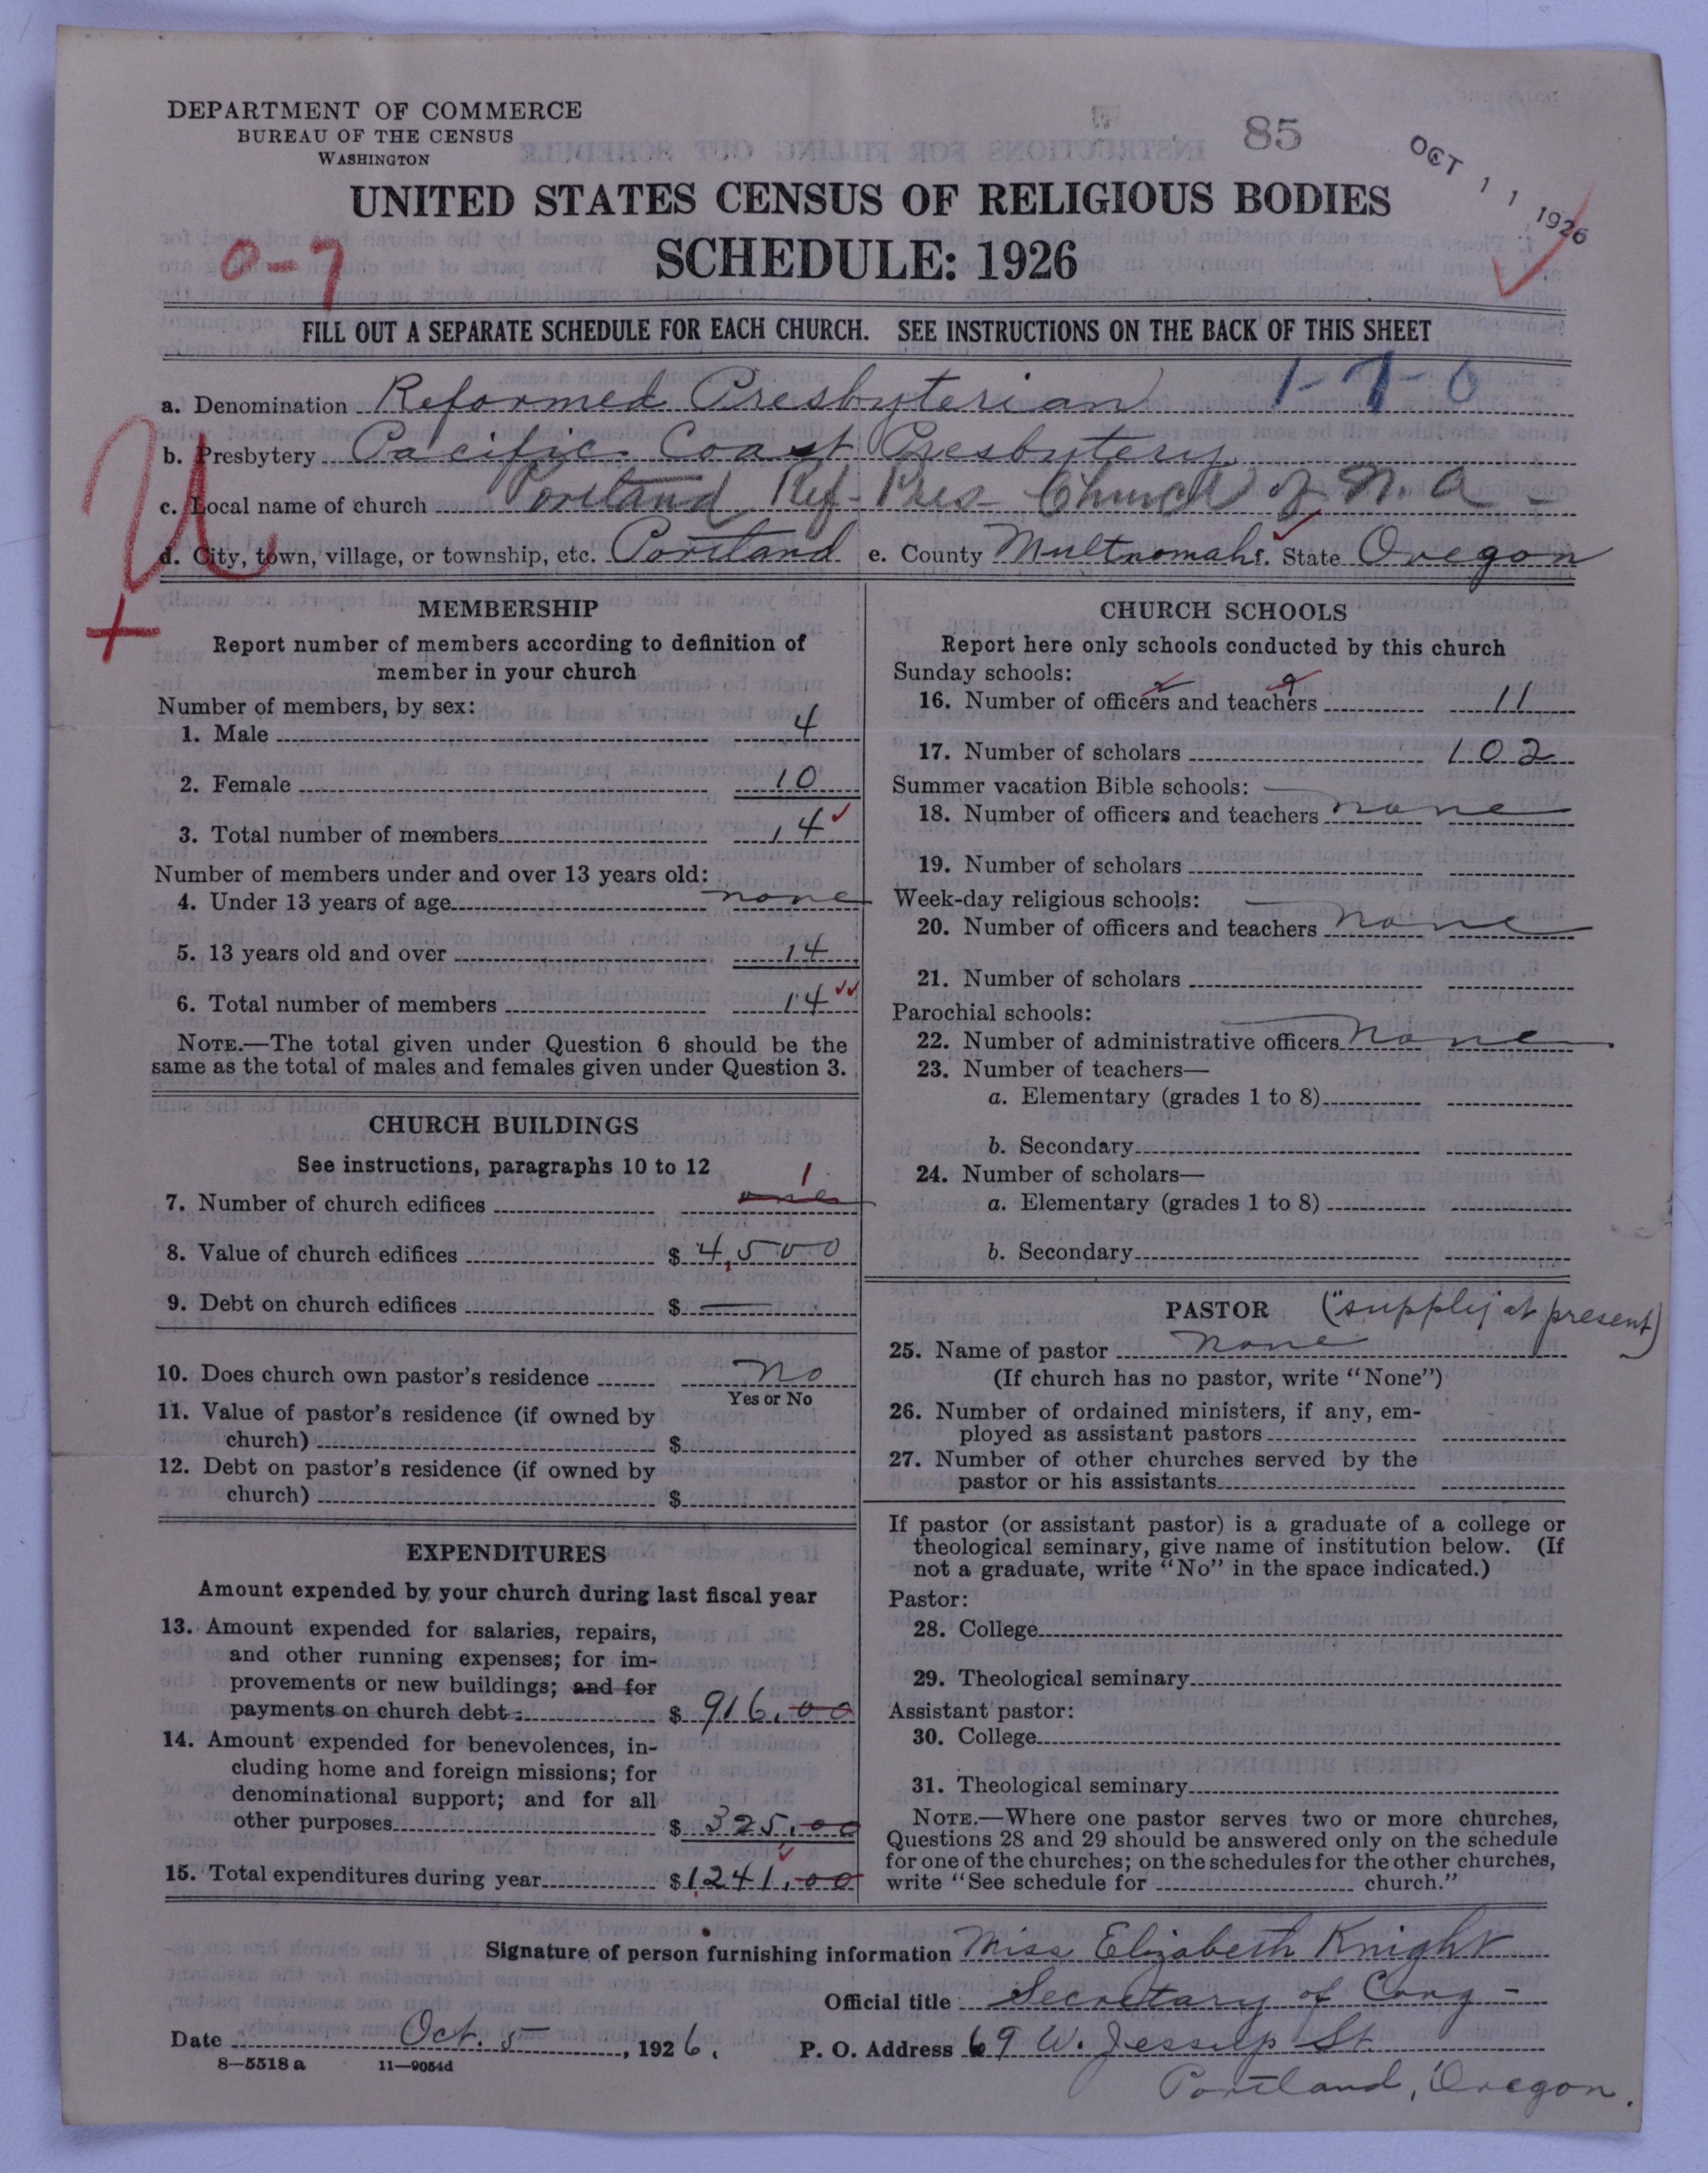 DEPARTMENT OF COMMERCE
BUREAU OF THE CENSUS
WASHINGTON
85
OCT 11 1926
UNITED STATES CENSUS OF RELIGIOUS BODIES
SCHEDULE: 1926
0-7
FILL OUT A SEPARATE SCHEDULE FOR EACH CHURCH. SEE INSTRUCTIONS ON THE BACK OF THIS SHEET
1-7-0
a. Denomination Reformed Presbyterian
b. Presbytery Pacific Coast Presbytery
c. Local name of church Portland Ref- Pres- Church of N. A -
d. City, town, village, or township, etc. Portland e. County Multnomah f. State Oregon
U
+
MEMBERSHIP
Report number of members according to definition of
member in your church
Number of members, by sex:
1. Male 4
2. Female 10
3. Total number of members 14
Number of members under and over 13 years old:
4. Under 13 years of age none
5. 13 years old and over 14
6. Total number of members 14
NOTE.—The total given under Question 6 should be the
same as the total of males and females given under Question 3.
CHURCH BUILDINGS
See instructions, paragraphs 10 to 12
1
7. Number of church edifices one
8. Value of church edifices $ 4,500
9. Debt on church edifices $ —
10. Does church own pastor's residence No
Yes or No
11. Value of pastor's residence (if owned by
church) $
12. Debt on pastor's residence (if owned by
church) $
EXPENDITURES
Amount expended by your church during last fiscal year
13. Amount expended for salaries, repairs,
and other running expenses; for im-
provements or new buildings; and for
payments on church debt $ 916.00
14. Amount expended for benevolences, in-
cluding home and foreign missions; for
denominational support; and for all
other purposes $ 325.00
15. Total expenditures during year $ 1,241.00
CHURCH SCHOOLS
Report here only schools conducted by this church
Sunday schools:
2 9
16. Number of officers and teachers 11
17. Number of scholars 102
Summer vacation Bible schools:
18. Number of officers and teachers none
19. Number of scholars
Week-day religious schools:
20. Number of officers and teachers none
21. Number of scholars
Parochial schools:
22. Number of administrative officers none
23. Number of teachers—
a. Elementary (grades 1 to 8)
b. Secondary
24. Number of scholars—
a. Elementary (grades 1 to 8)
b. Secondary
PASTOR ("supply" at present)
25. Name of pastor none
(If church has no pastor, write "None")
26. Number of ordained ministers, if any, em-
ployed as assistant pastors
27. Number of other churches served by the
pastor or his assistants
If pastor (or assistant pastor) is a graduate of a college or
theological seminary, give name of institution below. (If
not a graduate, write "No" in the space indicated.)
Pastor:
28. College
29. Theological seminary
Assistant pastor:
30. College
31. Theological seminary
NOTE.—Where one pastor serves two or more churches,
Questions 28 and 29 should be answered only on the schedule
for one of the churches; on the schedules for the other churches,
write "See schedule for church."
Signature of person furnishing information Miss Elizabeth Knight
Official title Secretary of Cong -
Date Oct. 5, 1926. P. O. Address 69 W. Jessup St.
8—5518 a 11—9054d
Portland, Oregon.